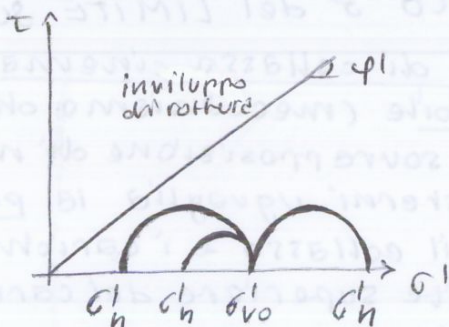 τ
inviluppo
di rottura
φ'
σ'h σ'h σ'v0 σ'h σ'